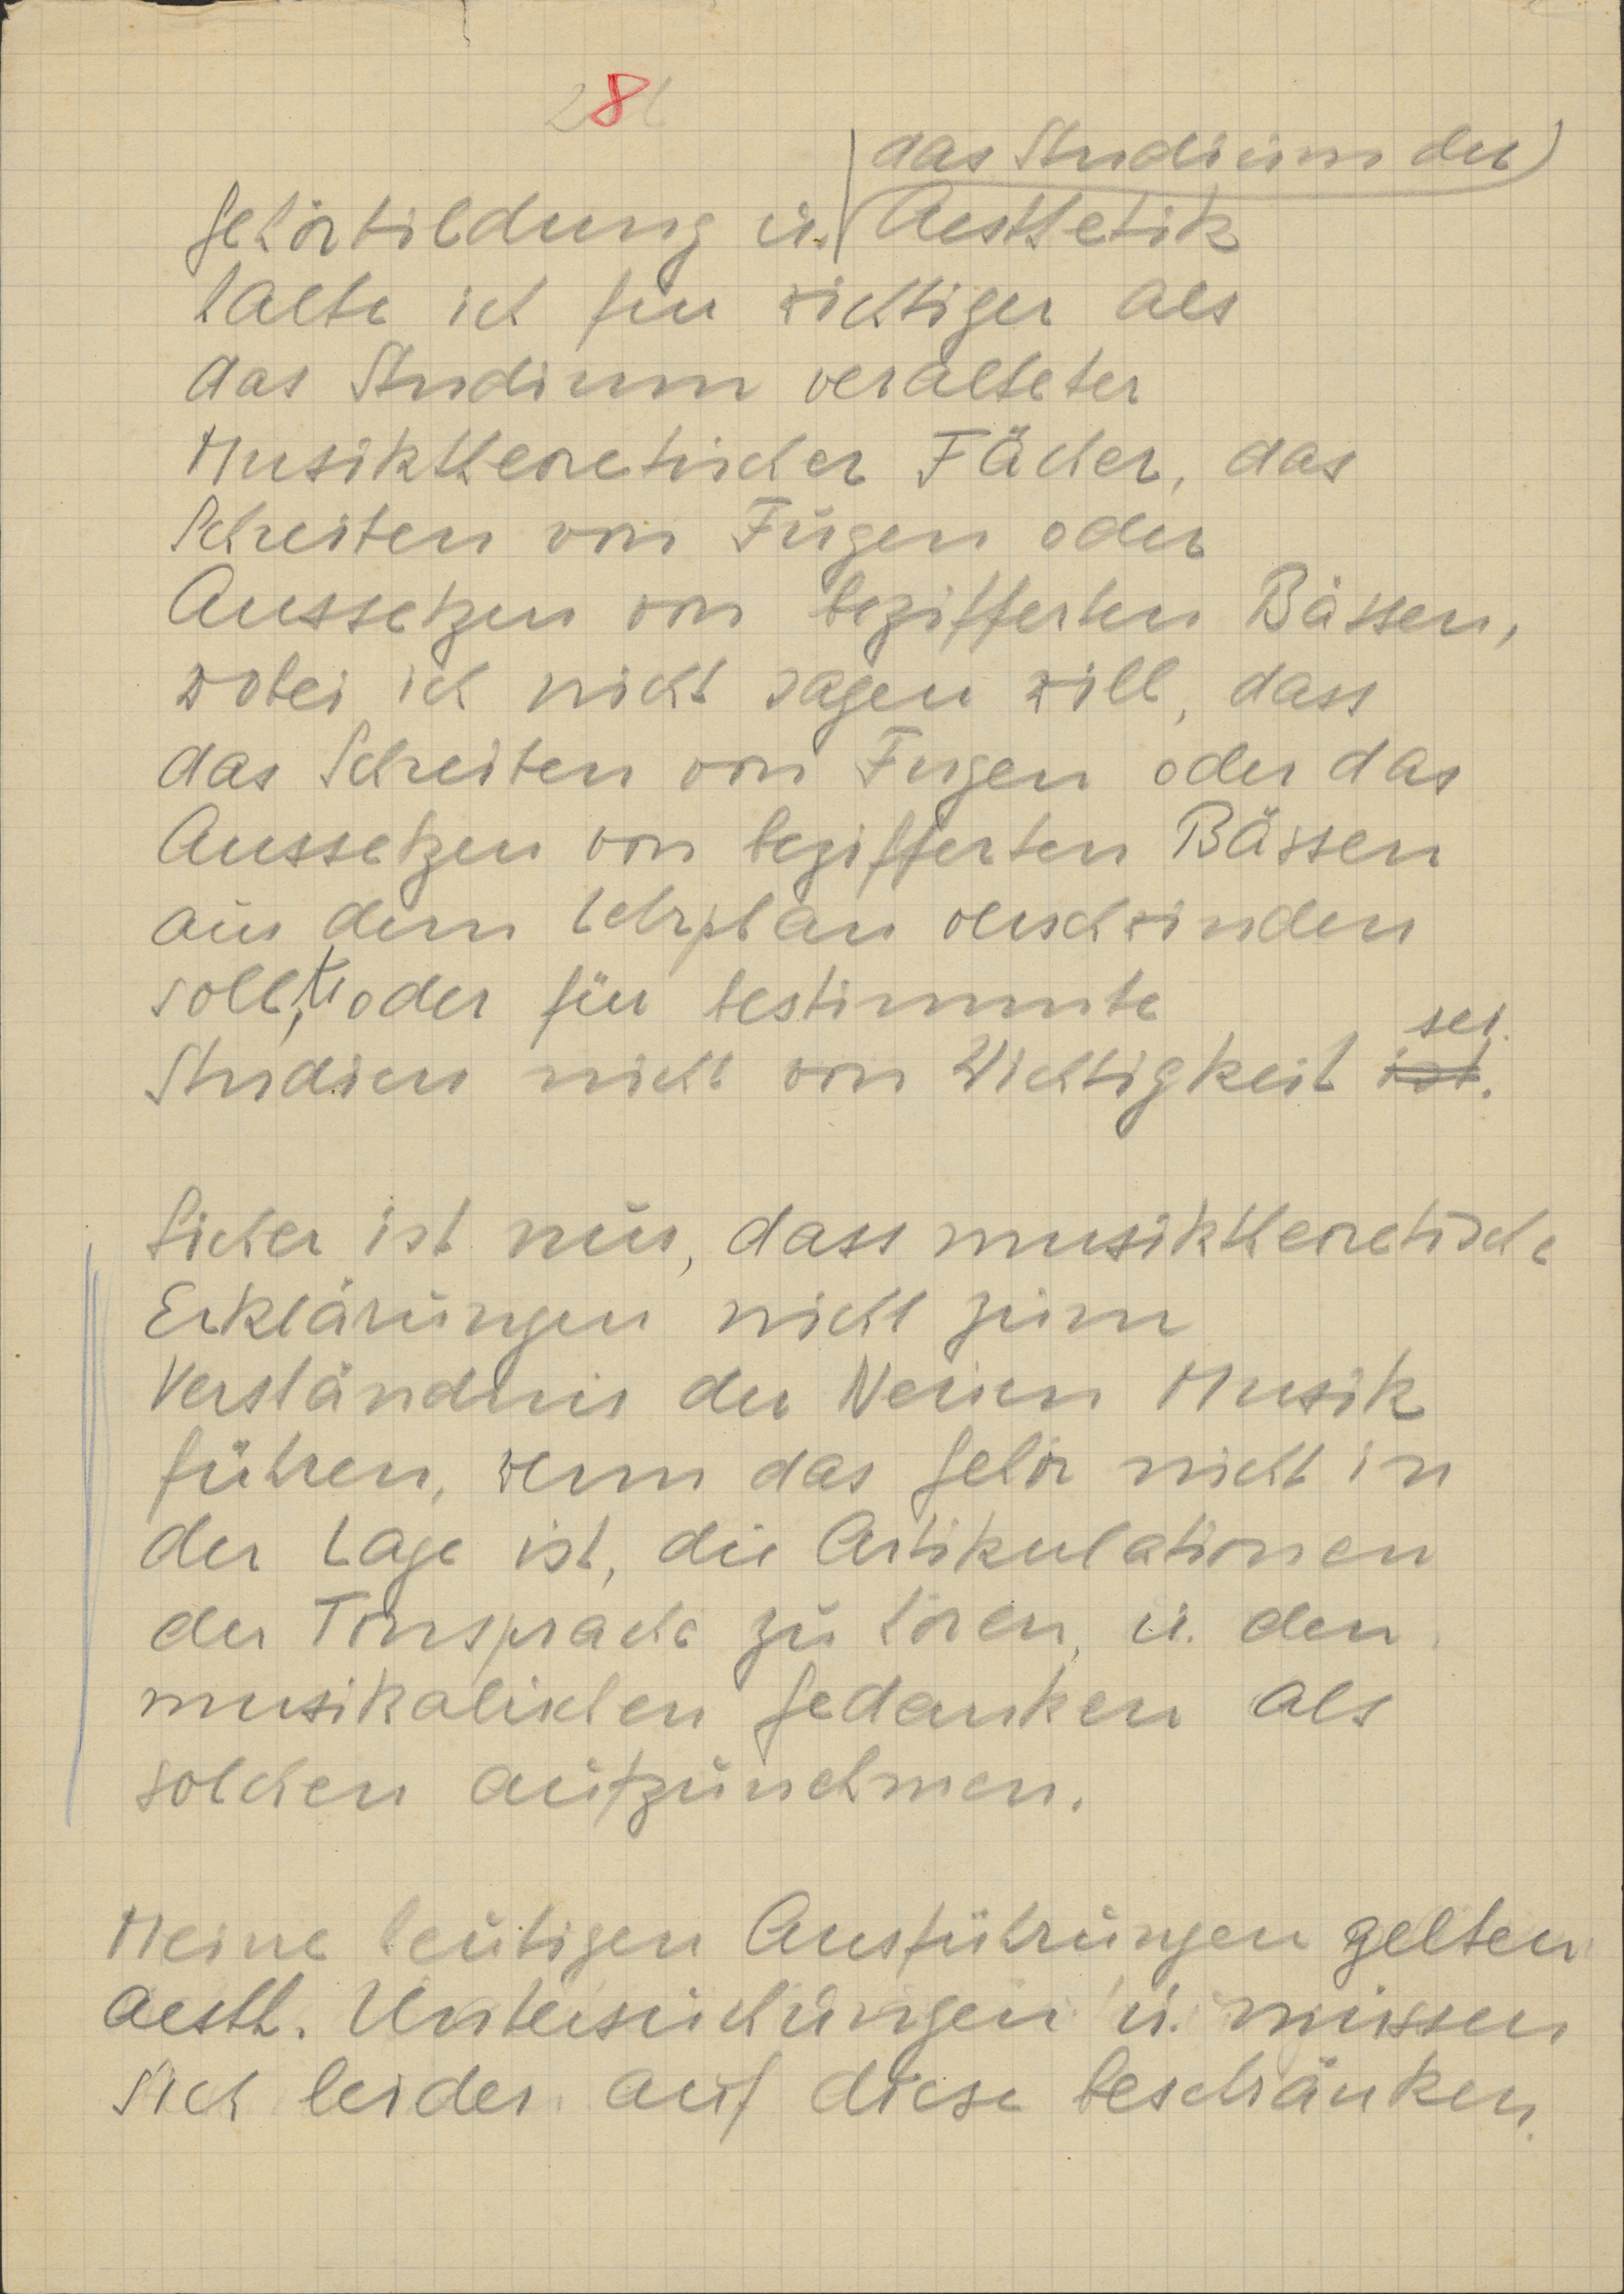 8
das Studium der
Gehörbildung u. Aesthetik
halte ich für wichtiger als
das Studium veralteter
Musiktheoretischer Fächer, das
Schreiben von Fugen oder
Aussetzen von bezifferten Bässen,
wobei ich nicht sagen will, dass
das Schreiben von Fugen oder das
Aussetzen von bezifferten Bässen
aus dem Lehrplan verschwinden
sollte, oder für bestimmte
sei.
Studien nicht von Wichtigkeit ist.
Sicher ist nur, dass musiktheoretische
Erklärungen nicht zum
Verständnis der Neuen Musik
führen, wenn das Gehör nicht in
der Lage ist, die Artikulationen
der Tonsprache zu hören, u. den
musikalischen Gedanken als
solchen aufzunehmen.
Meine heutigen Ausführungen gelten
aesth. Untersuchungen u. müssen
sich leider auf diese beschränken.